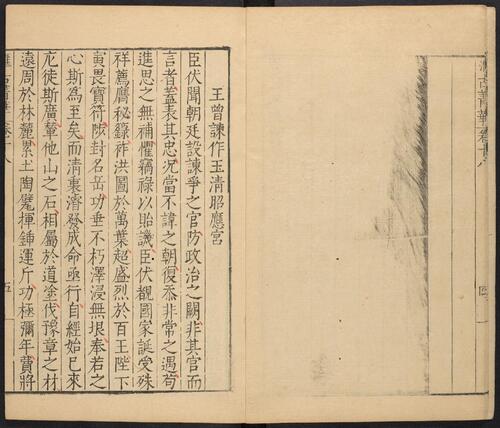 古菁華卷十八
王曾諫作玉清昭應宮
臣伏聞朝廷設諫爭之官防政治之闕非其官而
言者蓋表其忠況當不諱之朝復忝非常之遇苟
進思之無補懼竊祿以貽譏臣伏覩國家誕受殊
祥薦膺秘籙祚洪圖於萬葉超盛烈於百王陛下
寅畏寶符陟封名岳功垂不朽澤浸無垠奉若之
心斯為至矣而清衷濬發成命亟行自經始已來
庀徒斯廣輦他山之石相屬於道塗伐豫章之材
遠周於林麓累土陶甓揮鍤運斤功極彌年費將